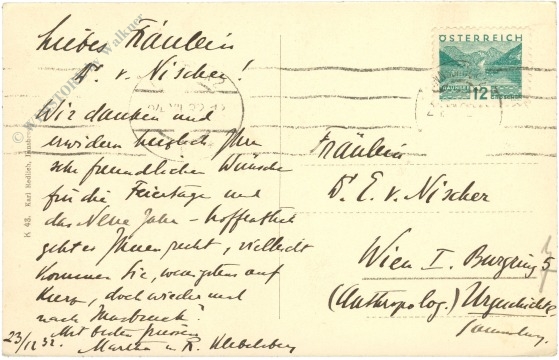 Liebes Fräulein
D. v. Nischer!
Wir danken und
erwidern herzlich Ihre
sehr freundlichen Wünsche
für die Feiertage und
das Neue Jahr – hoffentlich
geht es Ihnen recht, vielleicht
kommen Sie, wenigstens auf
kurz, doch wieder mal
nach Innsbruck!
Mit besten Grüssen
23/12 32. Martha u. R. Klebelsberg
ÖSTERREICH
12
Fräulein
D. E. v. Nischer
Wien I. Burgring 5
(Anthropolog.) Urgeschichtl.
Sammlung
K 43. Karl Redlich, Innsbruck
© Walkner